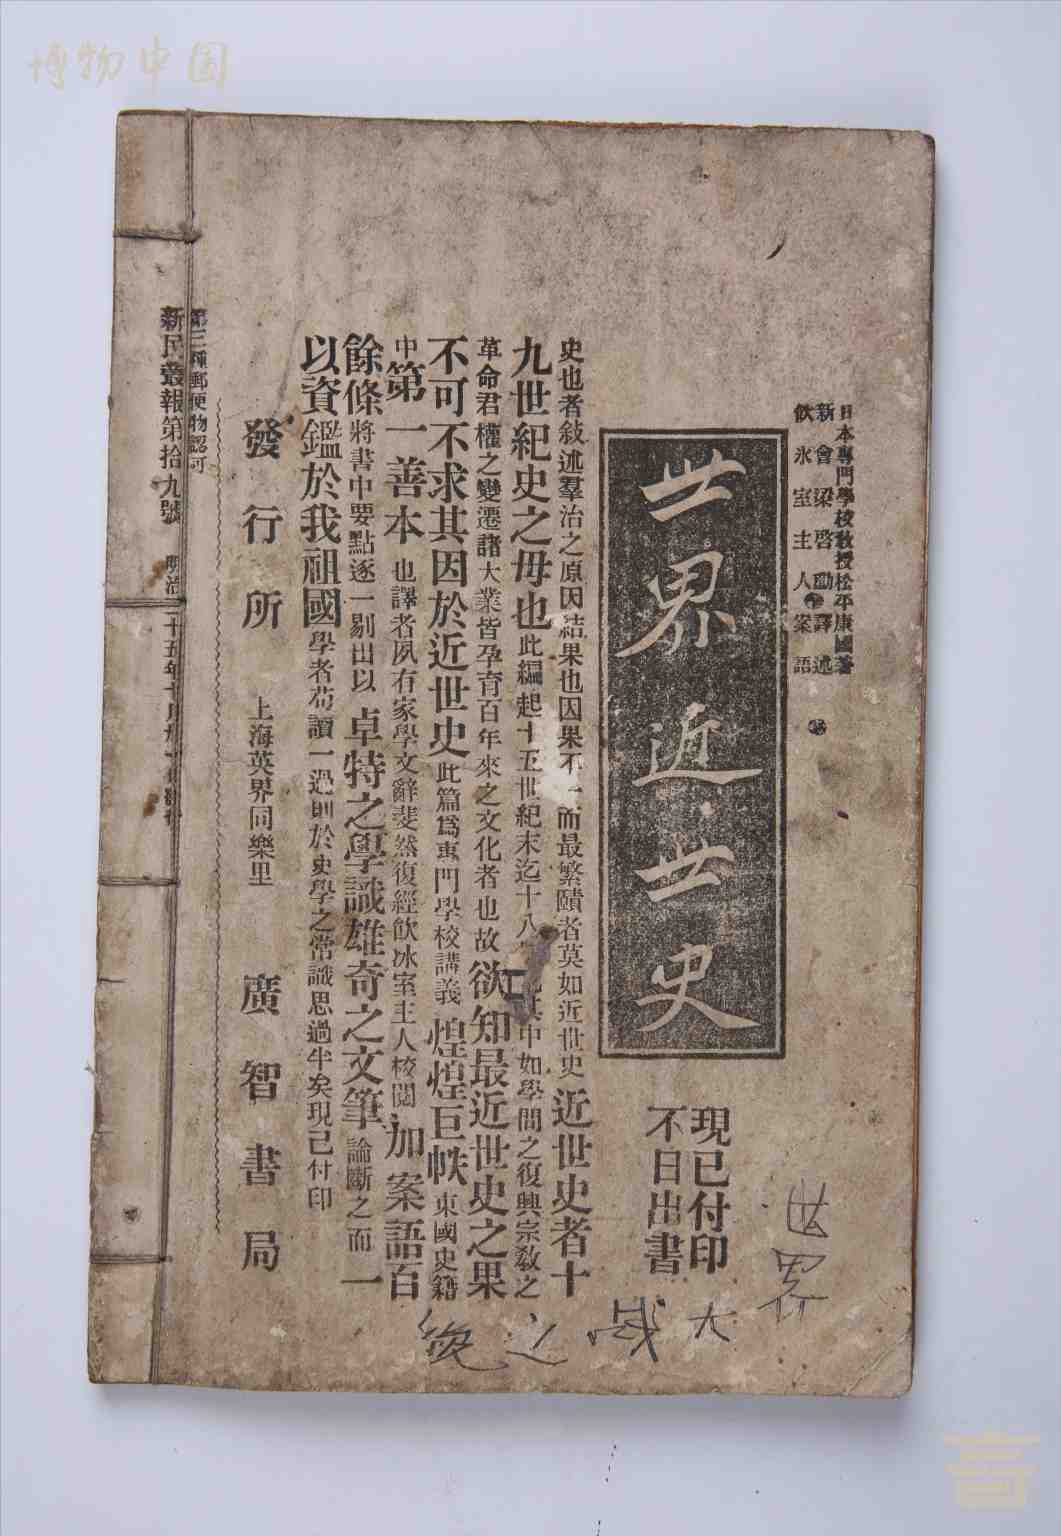 博物中国
日本專門學校敎授松平康國著
新會梁啓勳譯述
飲冰室主人案語
世界近世史
現已付印
不日出書
史也者敍述羣治之原因結果也因果不一而最繁賾者莫如近世史近世史者十
九世紀史之母也此編起十五世紀末迄十八其中如學問之復興宗敎之
革命君權之變遷諸大業皆孕育百年來之文化者也故欲知最近世史之果
不可不求其因於近世史此篇爲專門學校講義煌煌巨帙東國史籍
中第一善本也譯者夙有家學文辭斐然復經飲冰室主人校閱加案語百
餘條將書中要點逐一剔出以卓特之學識雄奇之文筆論斷之而一
以資鑑於我祖國學者苟讀一過則於史學之常識思過半矣現已付印
發行所 上海英界同樂里 廣智書局
第三種郵便物認可
新民叢報第拾九號 明治三十五年十月
世界
大
战
之
後